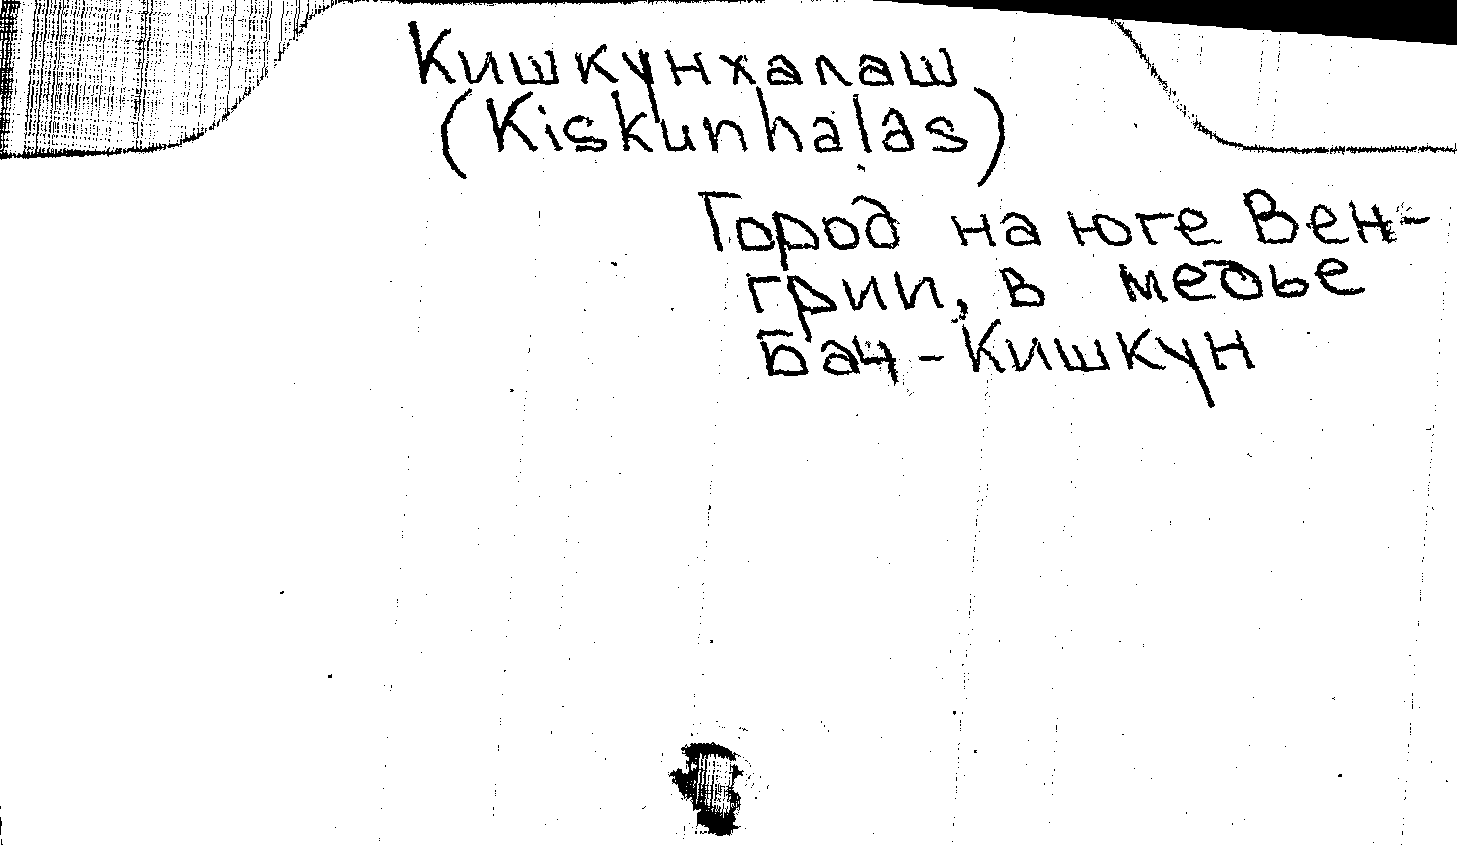 Кишкунхалаш
(Kiskunhalas)
Город на юге Вен-
грии, в медье
Бач-Кишкун